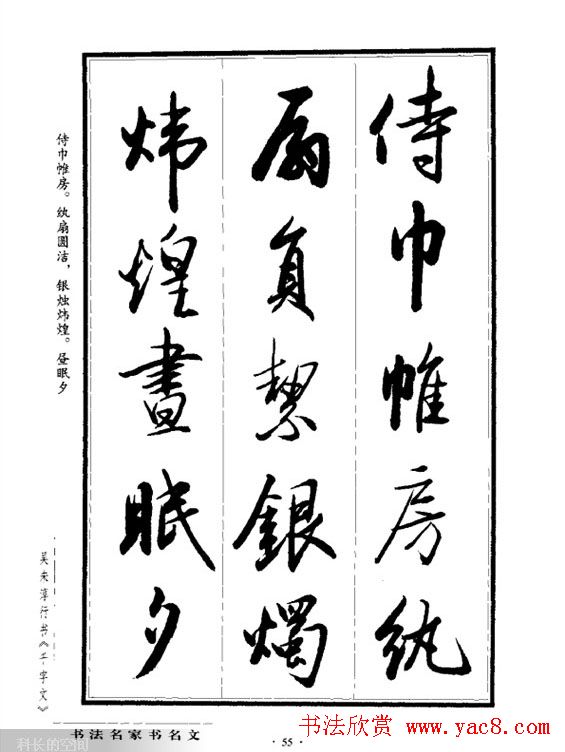 侍巾帷房纨
扇負絜銀燭
煒煌晝眠夕
侍巾帷房。纨扇圆洁，银烛炜煌。昼眠夕
吴未淳行书《千字文》
书法名家书名文
· 55 ·
科长的空间
书法欣赏 www.yac8.com